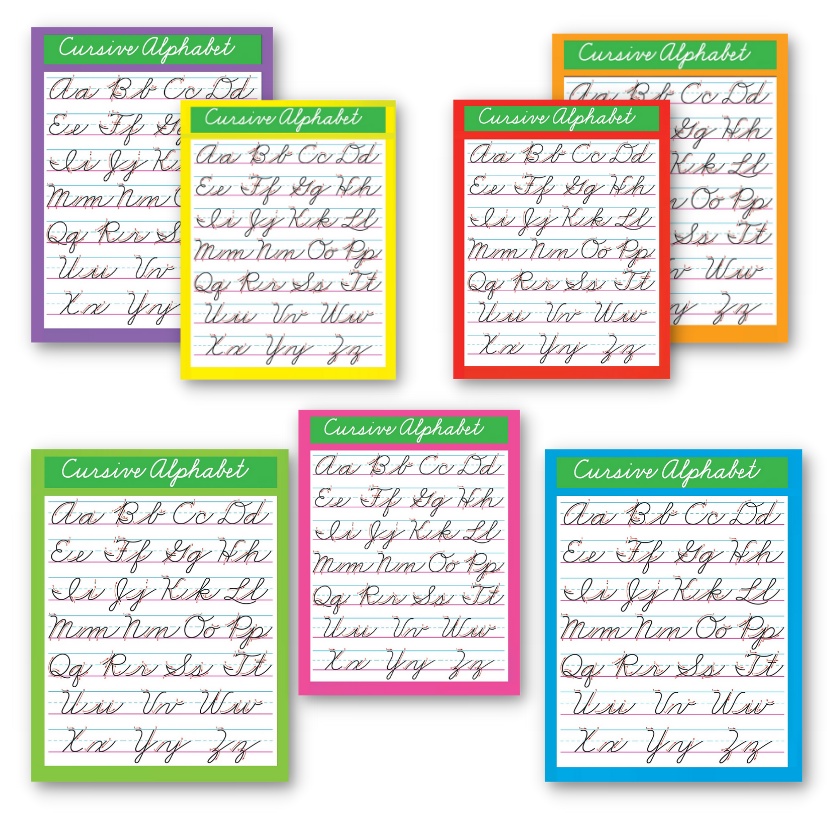 Cursive Alphabet
Aa Bb Cc Dd
Ee Ff Gg
Ii Jj K
Mm Nn
Qq Rr S
Uu Vv
Xx Yy
Cursive Alphabet
Aa Bb Cc Dd
Ee Ff Gg Hh
Ii Jj Kk Ll
Mm Nn Oo Pp
Qq Rr Ss Tt
Uu Vv Ww
Xx Yy Zz
Cursive Alphabet
Aa Bb Cc Dd
Ee Ff Gg Hh
Ii Jj Kk Ll
Mm Nn Oo Pp
Qq Rr Ss Tt
Uu Vv Ww
Xx Yy Zz
Cursive Alphabet
Aa Bb Cc Dd
g Hh
Kk Ll
Oo Pp
Ss Tt
v Ww
y Zz
Cursive Alphabet
Aa Bb Cc Dd
Ee Ff Gg Hh
Ii Jj Kk Ll
Mm Nn Oo Pp
Qq Rr Ss Tt
Uu Vv Ww
Xx Yy Zz
Cursive Alphabet
Aa Bb Cc Dd
Ee Ff Gg Hh
Ii Jj Kk Ll
Mm Nn Oo Pp
Qq Rr Ss Tt
Uu Vv Ww
Xx Yy Zz
Cursive Alphabet
Aa Bb Cc Dd
Ee Ff Gg Hh
Ii Jj Kk Ll
Mm Nn Oo Pp
Qq Rr Ss Tt
Uu Vv Ww
Xx Yy Zz